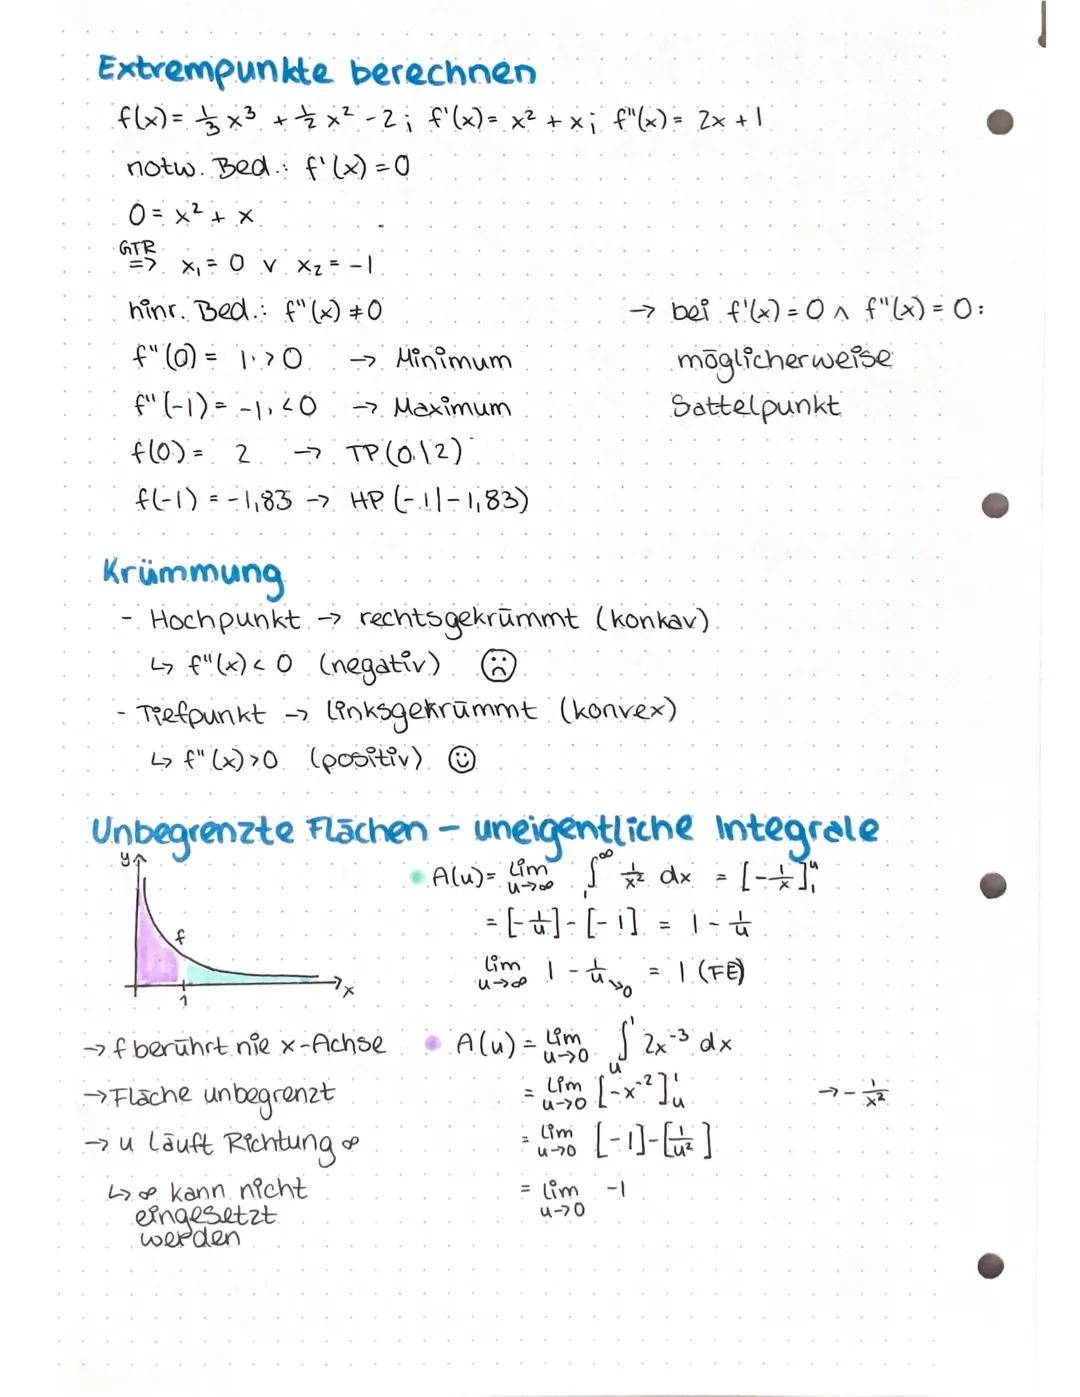 Extrempunkte berechnen
f(x) = 1/3 x³ + 1/2 x² - 2; f'(x) = x² + x; f"(x) = 2x + 1
notw. Bed.: f'(x) = 0
0 = x² + x
GTR
=> x₁ = 0 ∨ x₂ = -1
hinr. Bed.: f"(x) ≠ 0
f"(0) = 1 > 0 → Minimum
f"(-1) = -1 < 0 → Maximum
f(0) = 2 → TP (0|2)
f(-1) = -1,83 → HP (-1|-1,83)
→ bei f'(x) = 0 ∧ f"(x) = 0:
möglicherweise
Sattelpunkt
Krümmung
- Hochpunkt → rechtsgekrümmt (konkav)
↳ f"(x) < 0 (negativ) ☹
- Tiefpunkt → linksgekrümmt (konvex)
↳ f"(x) > 0 (positiv) ☺
Unbegrenzte Flächen - uneigentliche Integrale
y
f
1
x
• A(u) = lim u→∞ ∫₁^∞ 1/x² dx = [-1/x]₁ᵘ
= [-1/u] - [-1] = 1 - 1/u
lim u→∞ 1 - 1/u ↘0 = 1 (FE)
→ f berührt nie x-Achse
→ Fläche unbegrenzt
→ u läuft Richtung ∞
↳ ∞ kann nicht
eingesetzt
werden
• A(u) = lim u→0 ∫ᵤ¹ 2x⁻³ dx
= lim u→0 [-x⁻²]ᵤ¹ → - 1/x²
= lim u→0 [-1] - [1/u²]
= lim u→0 -1